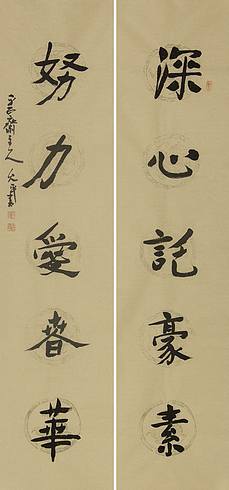 深心託豪素
努力愛春華